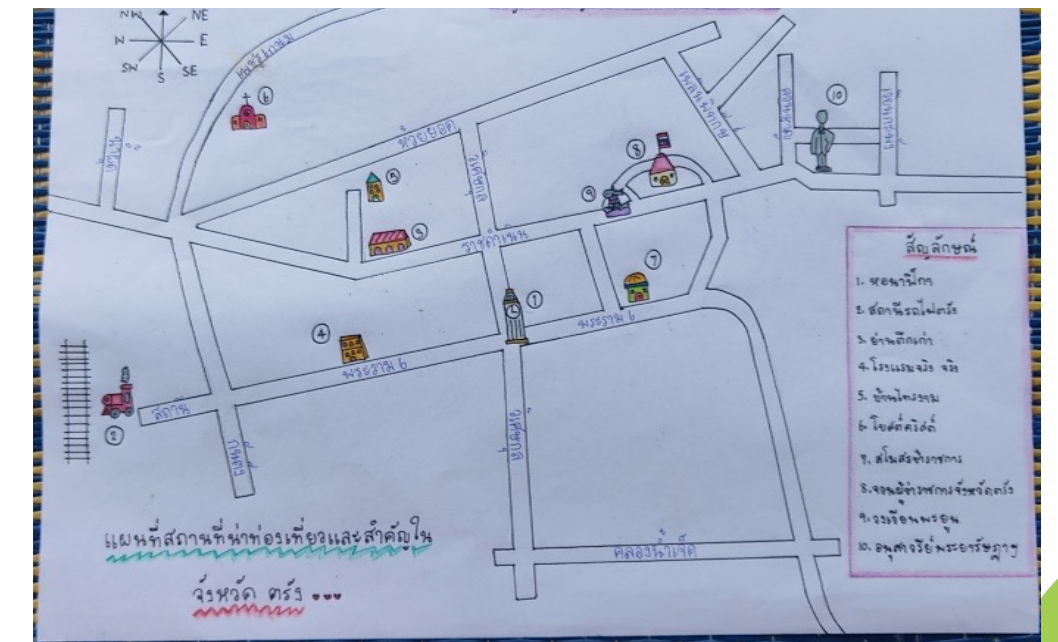 NW
NE
N
E
SW
S
SE
เพชรเกษม
⑥
⑩
ห้วยยอด
เพลินพิทักษ์
⑤
⑧
⑨
③
ราชดำเนิน
⑦
①
④
พระราม 6
พระราม 6
②
สถานี
กันตัง
วิเศษกุล
คลองน้ำเจ็ด
แผนที่สถานที่น่าท่องเที่ยวและสำคัญใน
จังหวัด ตรัง ...
สัญลักษณ์
1. หอนาฬิกา
2. สถานีรถไฟตรัง
3. ย่านตึกเก่า
4. โรงแรมจริง จริง
5. บ้านไทรงาม
6. โบสถ์คริสต์
7. สโมสรข้าราชการ
8. จวนผู้ว่าราชการจังหวัดตรัง
9. วงเวียนพะยูน
10. อนุสาวรีย์พระยารัษฎาฯ